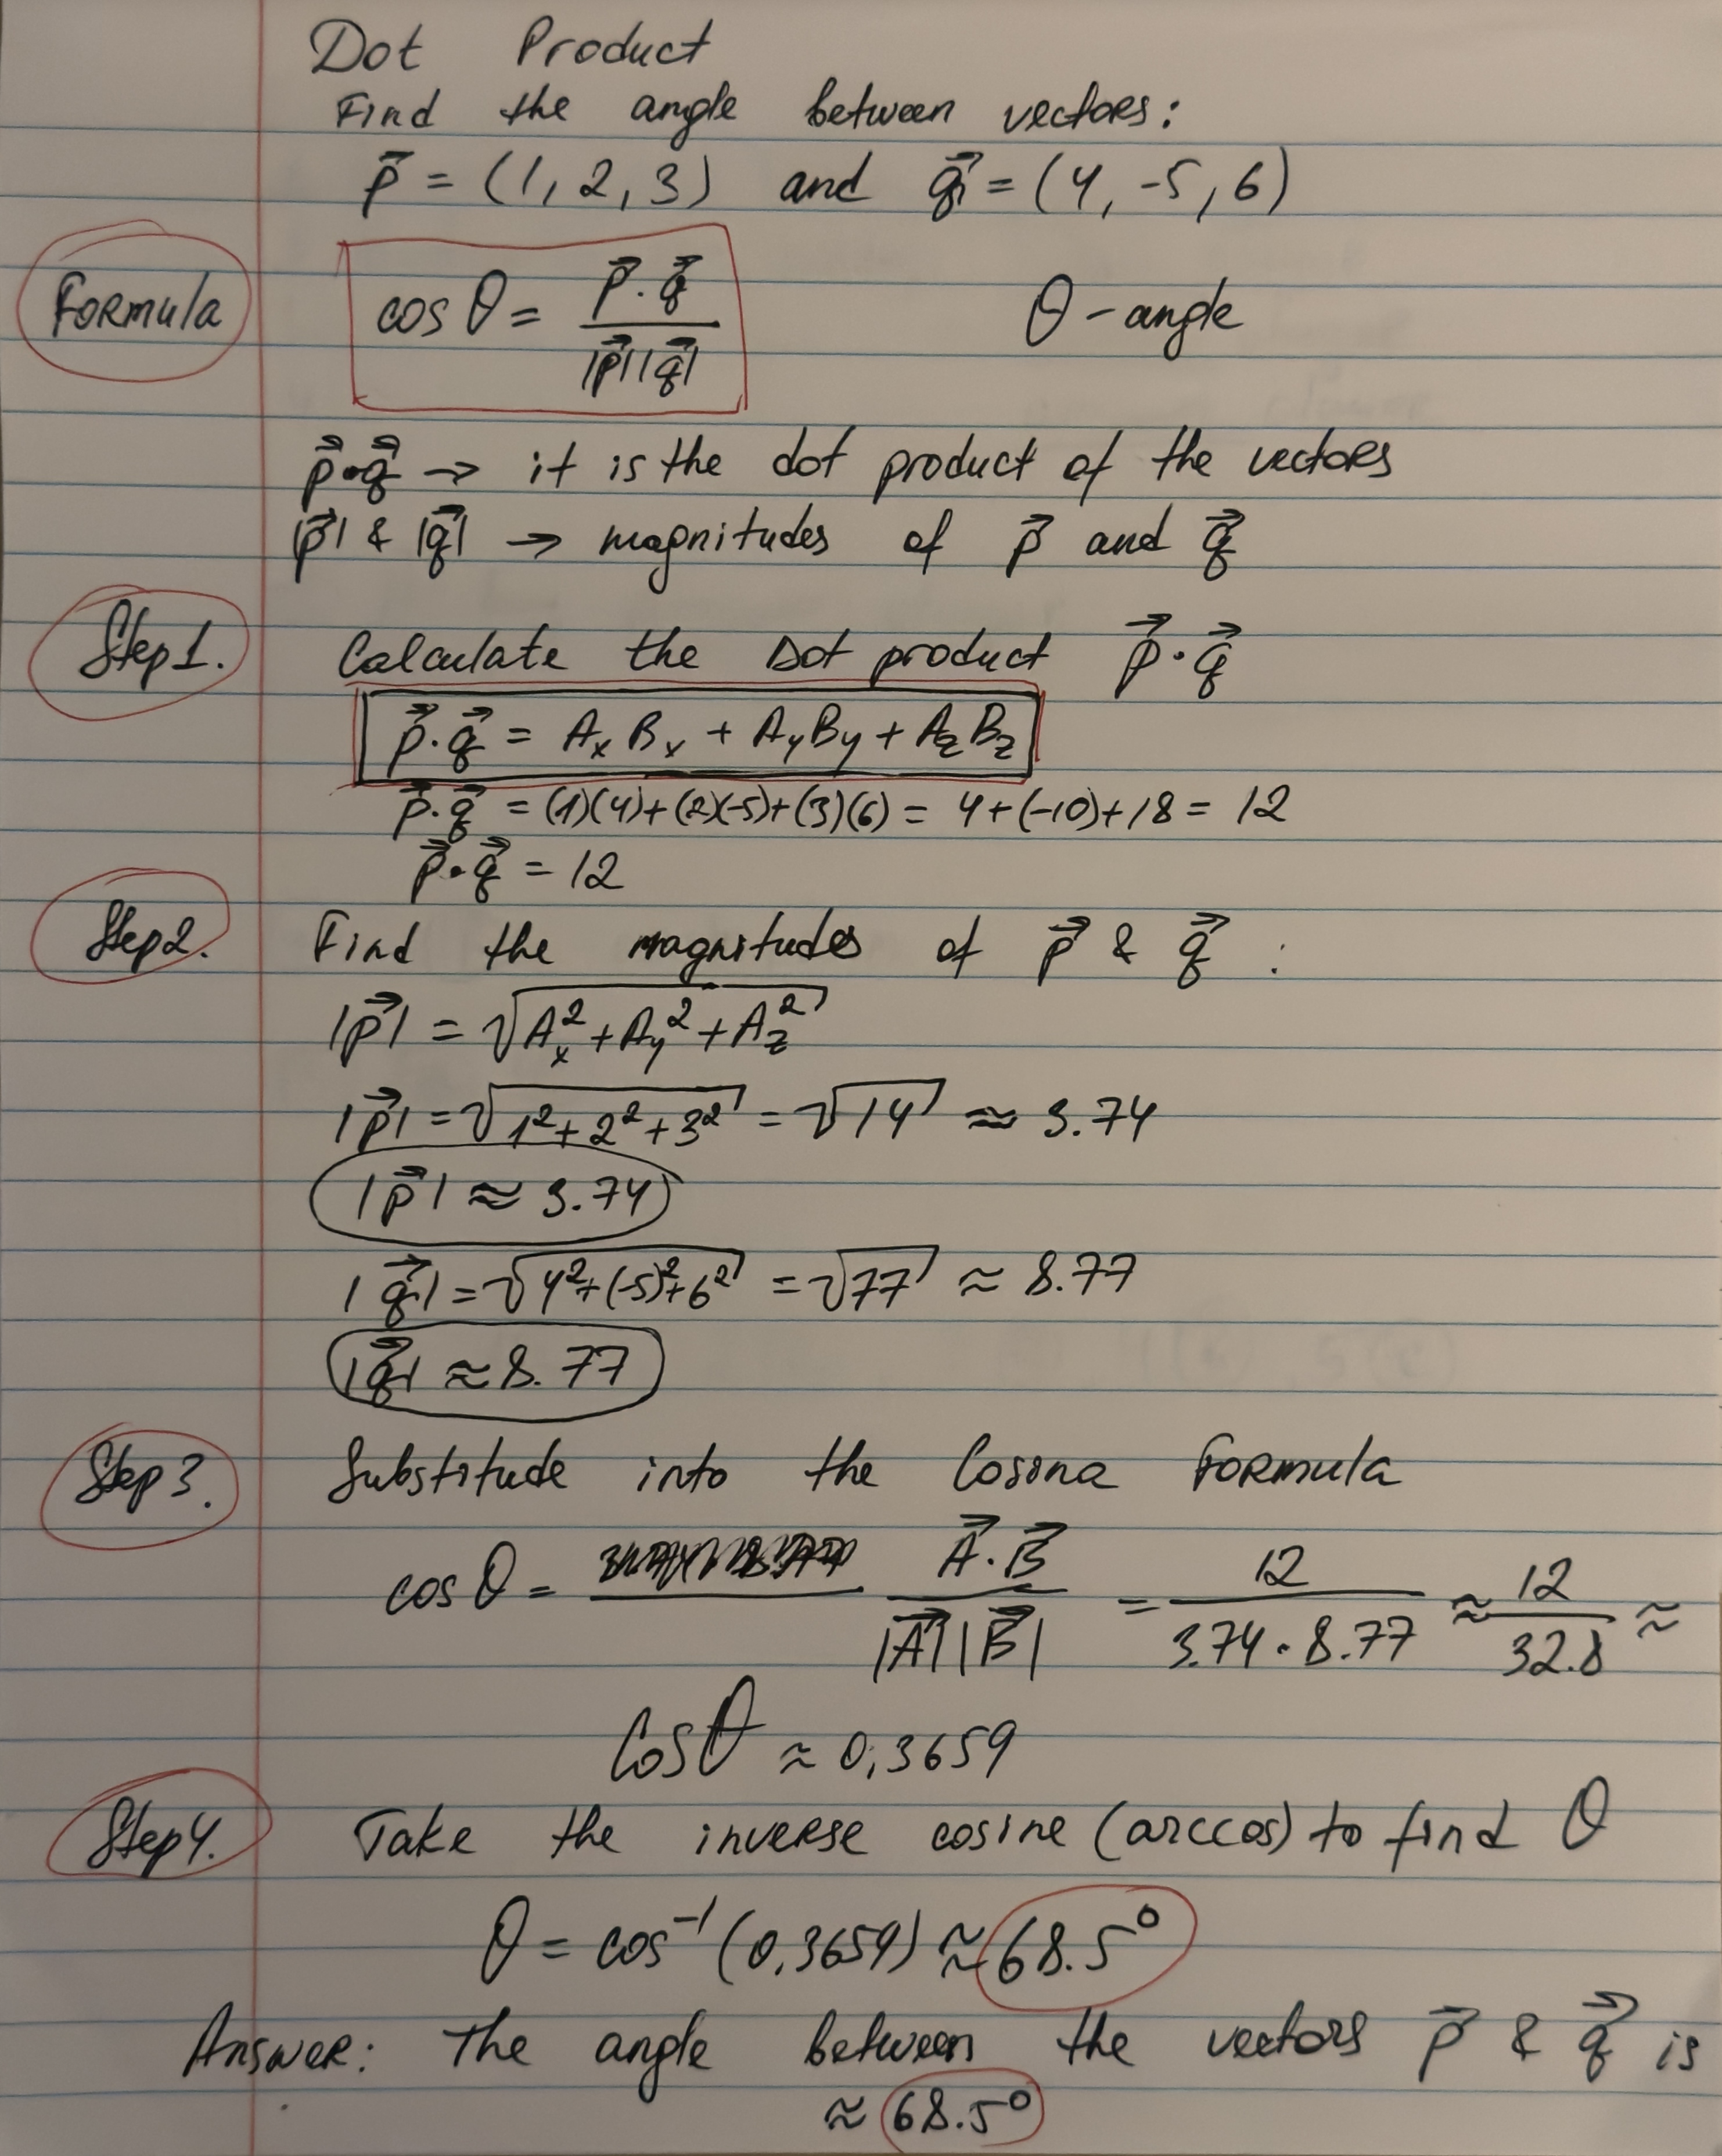 Dot Product
Find the angle between vectors:
p⃗ = (1, 2, 3) and q⃗ = (4, -5, 6)
Formula cos θ = p⃗ · q⃗ / |p⃗| |q⃗| θ - angle
p⃗ · q⃗ → it is the dot product of the vectors
|p⃗| & |q⃗| → magnitudes of p⃗ and q⃗
Step 1. Calculate the Dot product p⃗ · q⃗
p⃗ · q⃗ = AₓBₓ + A_yB_y + A_zB_z
p⃗ · q⃗ = (1)(4)+(2)(-5)+(3)(6) = 4+(-10)+18 = 12
p⃗ · q⃗ = 12
Step 2. Find the magnitudes of p⃗ & q⃗ :
|p⃗| = √(Aₓ² + A_y² + A_z²)
|p⃗| = √(1² + 2² + 3²) = √14 ≈ 3.74
|p⃗| ≈ 3.74
|q⃗| = √(4² + (-5)² + 6²) = √77 ≈ 8.77
|q⃗| ≈ 8.77
Step 3. Substitude into the Cosina Formula
cos θ = A⃗ · B⃗ / |A⃗| |B⃗| = 12 / 3.74 · 8.77 ≈ 12 / 32.8 ≈
Cos θ ≈ 0,3659
Step 4. Take the inverse cosine (arccos) to find θ
θ = cos⁻¹ (0,3659) ≈ 68.5°
Answer: The angle between the vectors p⃗ & q⃗ is
≈ 68.5°